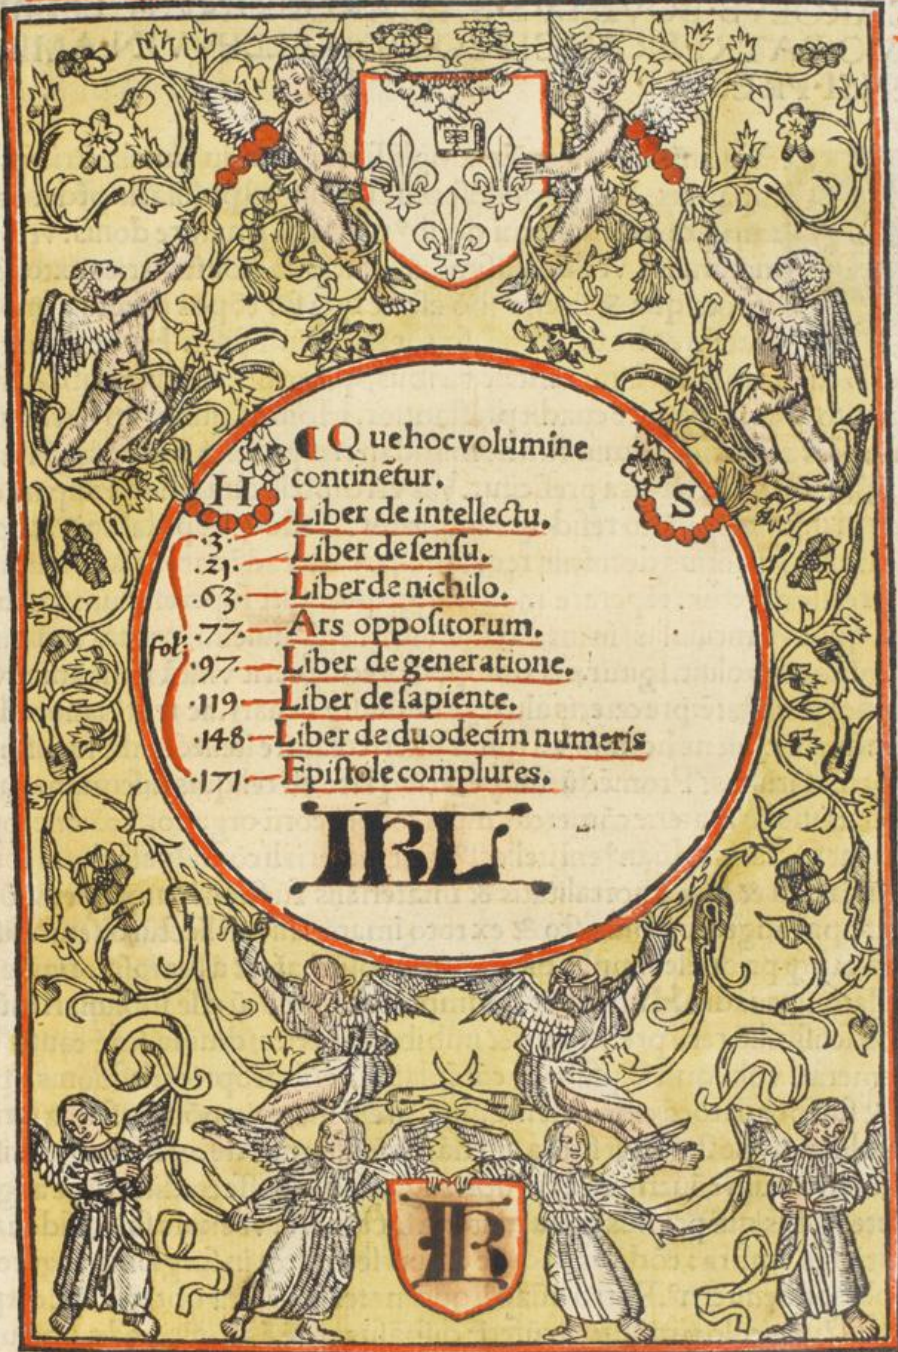 H
S
Que hoc volumine
continẽtur.
Liber de intellectu.
·3· Liber de sensu.
·21·
·63· Liber de nichilo.
fol: ·77· Ars oppositorum.
·97· Liber de generatione.
·119· Liber de sapiente.
·148· Liber de duodecim numeris
·171· Epistole complures.
IBL
IB